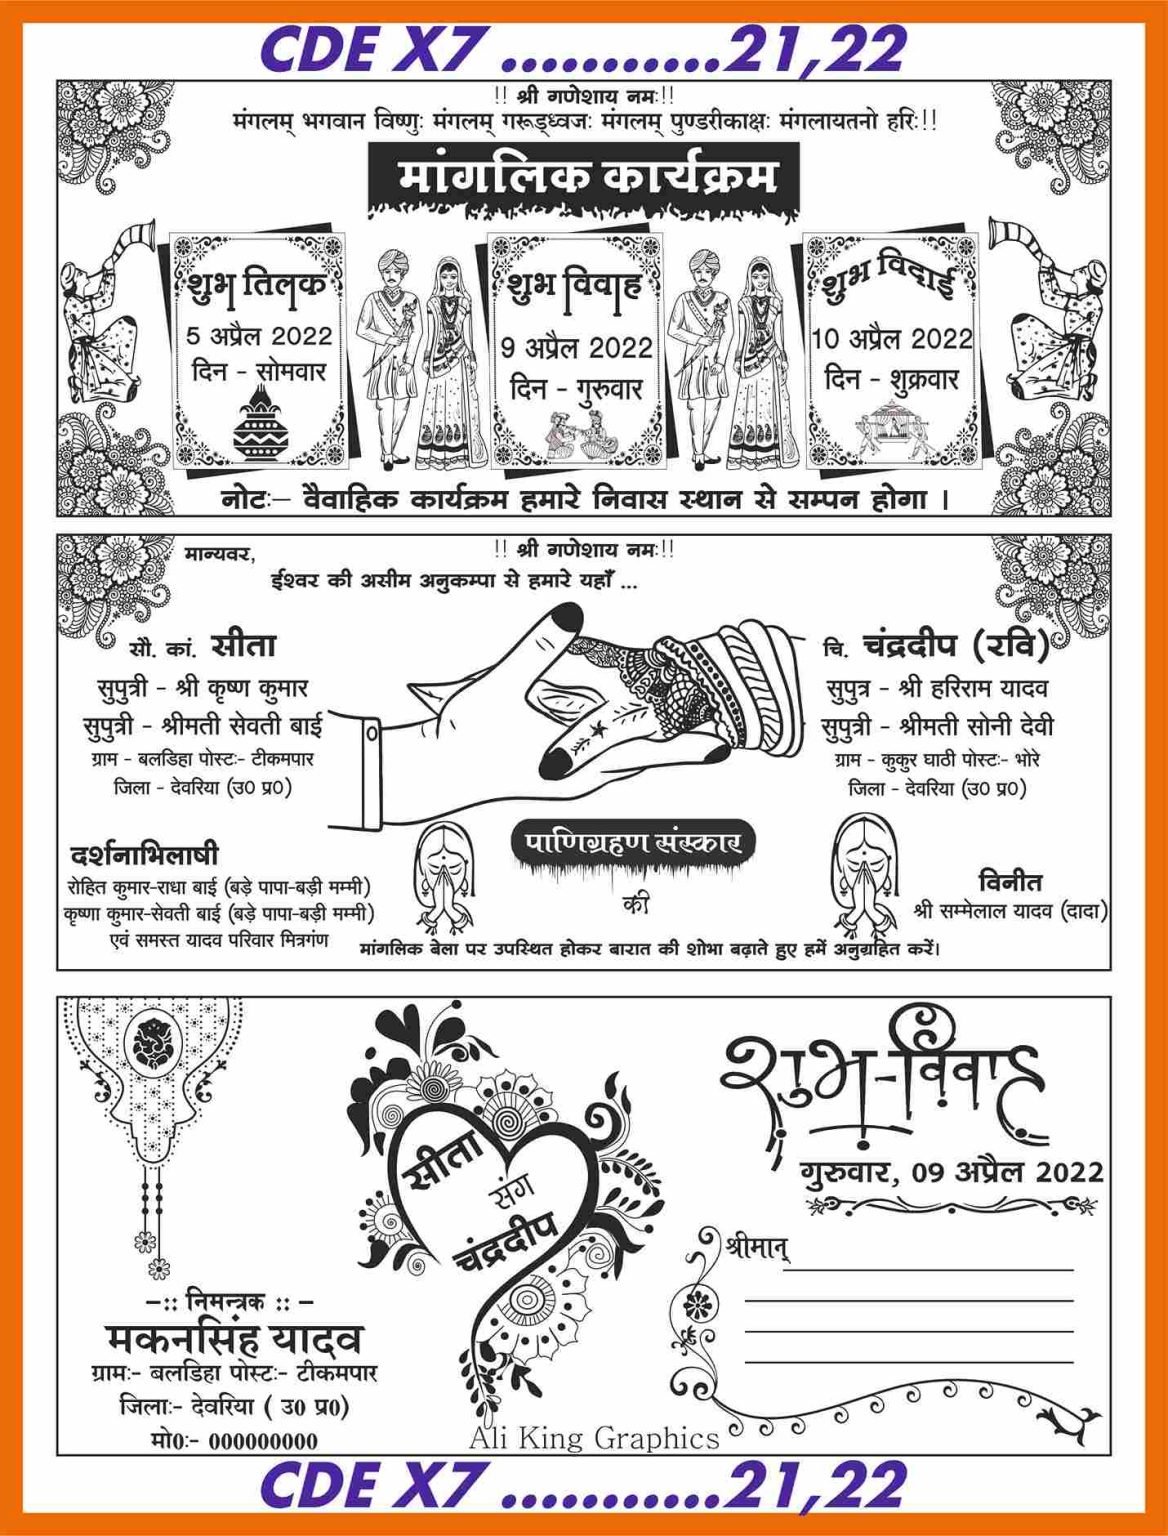 CDE X7 ...........21,22
!! श्री गणेशाय नमः!!
मंगलम् भगवान विष्णुः मंगलम् गरूड्ध्वजः मंगलम् पुण्डरीकाक्षः मंगलायतनो हरिः!!
मांगलिक कार्यक्रम
शुभ तिलक
5 अप्रैल 2022
दिन - सोमवार
शुभ विवाह
9 अप्रैल 2022
दिन - गुरुवार
शुभ विदाई
10 अप्रैल 2022
दिन - शुक्रवार
नोटः– वैवाहिक कार्यक्रम हमारे निवास स्थान से सम्पन होगा ।
!! श्री गणेशाय नमः!!
मान्यवर,
ईश्वर की असीम अनुकम्पा से हमारे यहाँ ...
सौ. कां. सीता
सुपुत्री - श्री कृष्ण कुमार
सुपुत्री - श्रीमती सेवती बाई
ग्राम - बलडिहा पोस्टः- टीकमपार
जिला - देवरिया (उ0 प्र0)
चि. चंद्रदीप (रवि)
सुपुत्र - श्री हरिराम यादव
सुपुत्री - श्रीमती सोनी देवी
ग्राम - कुकुर घाठी पोस्टः- भोरे
जिला - देवरिया (उ0 प्र0)
पाणिग्रहण संस्कार
की
दर्शनाभिलाषी
रोहित कुमार-राधा बाई (बड़े पापा-बड़ी मम्मी)
कृष्णा कुमार-सेवती बाई (बड़े पापा-बड़ी मम्मी)
एवं समस्त यादव परिवार मित्रगंण
विनीत
श्री सम्मेलाल यादव (दादा)
मांगलिक बेला पर उपस्थित होकर बारात की शोभा बढ़ाते हुए हमें अनुग्रहित करें।
सीता
संग
चंद्रदीप
शुभ-विवाह
गुरुवार, 09 अप्रैल 2022
श्रीमान्
–:: निमन्त्रक :: –
मकनसिंह यादव
ग्रामः- बलडिहा पोस्टः- टीकमपार
जिलाः- देवरिया ( उ0 प्र0)
मो0ः- 000000000
Ali King Graphics
CDE X7 ...........21,22